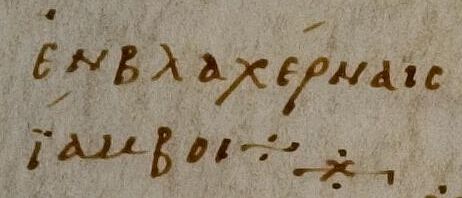 ἐν βλαχέρναις
ΐαμβοι ÷ ※